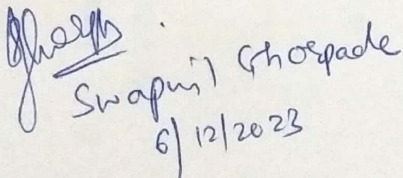 Swapnil Ghorpade
6/12/2023